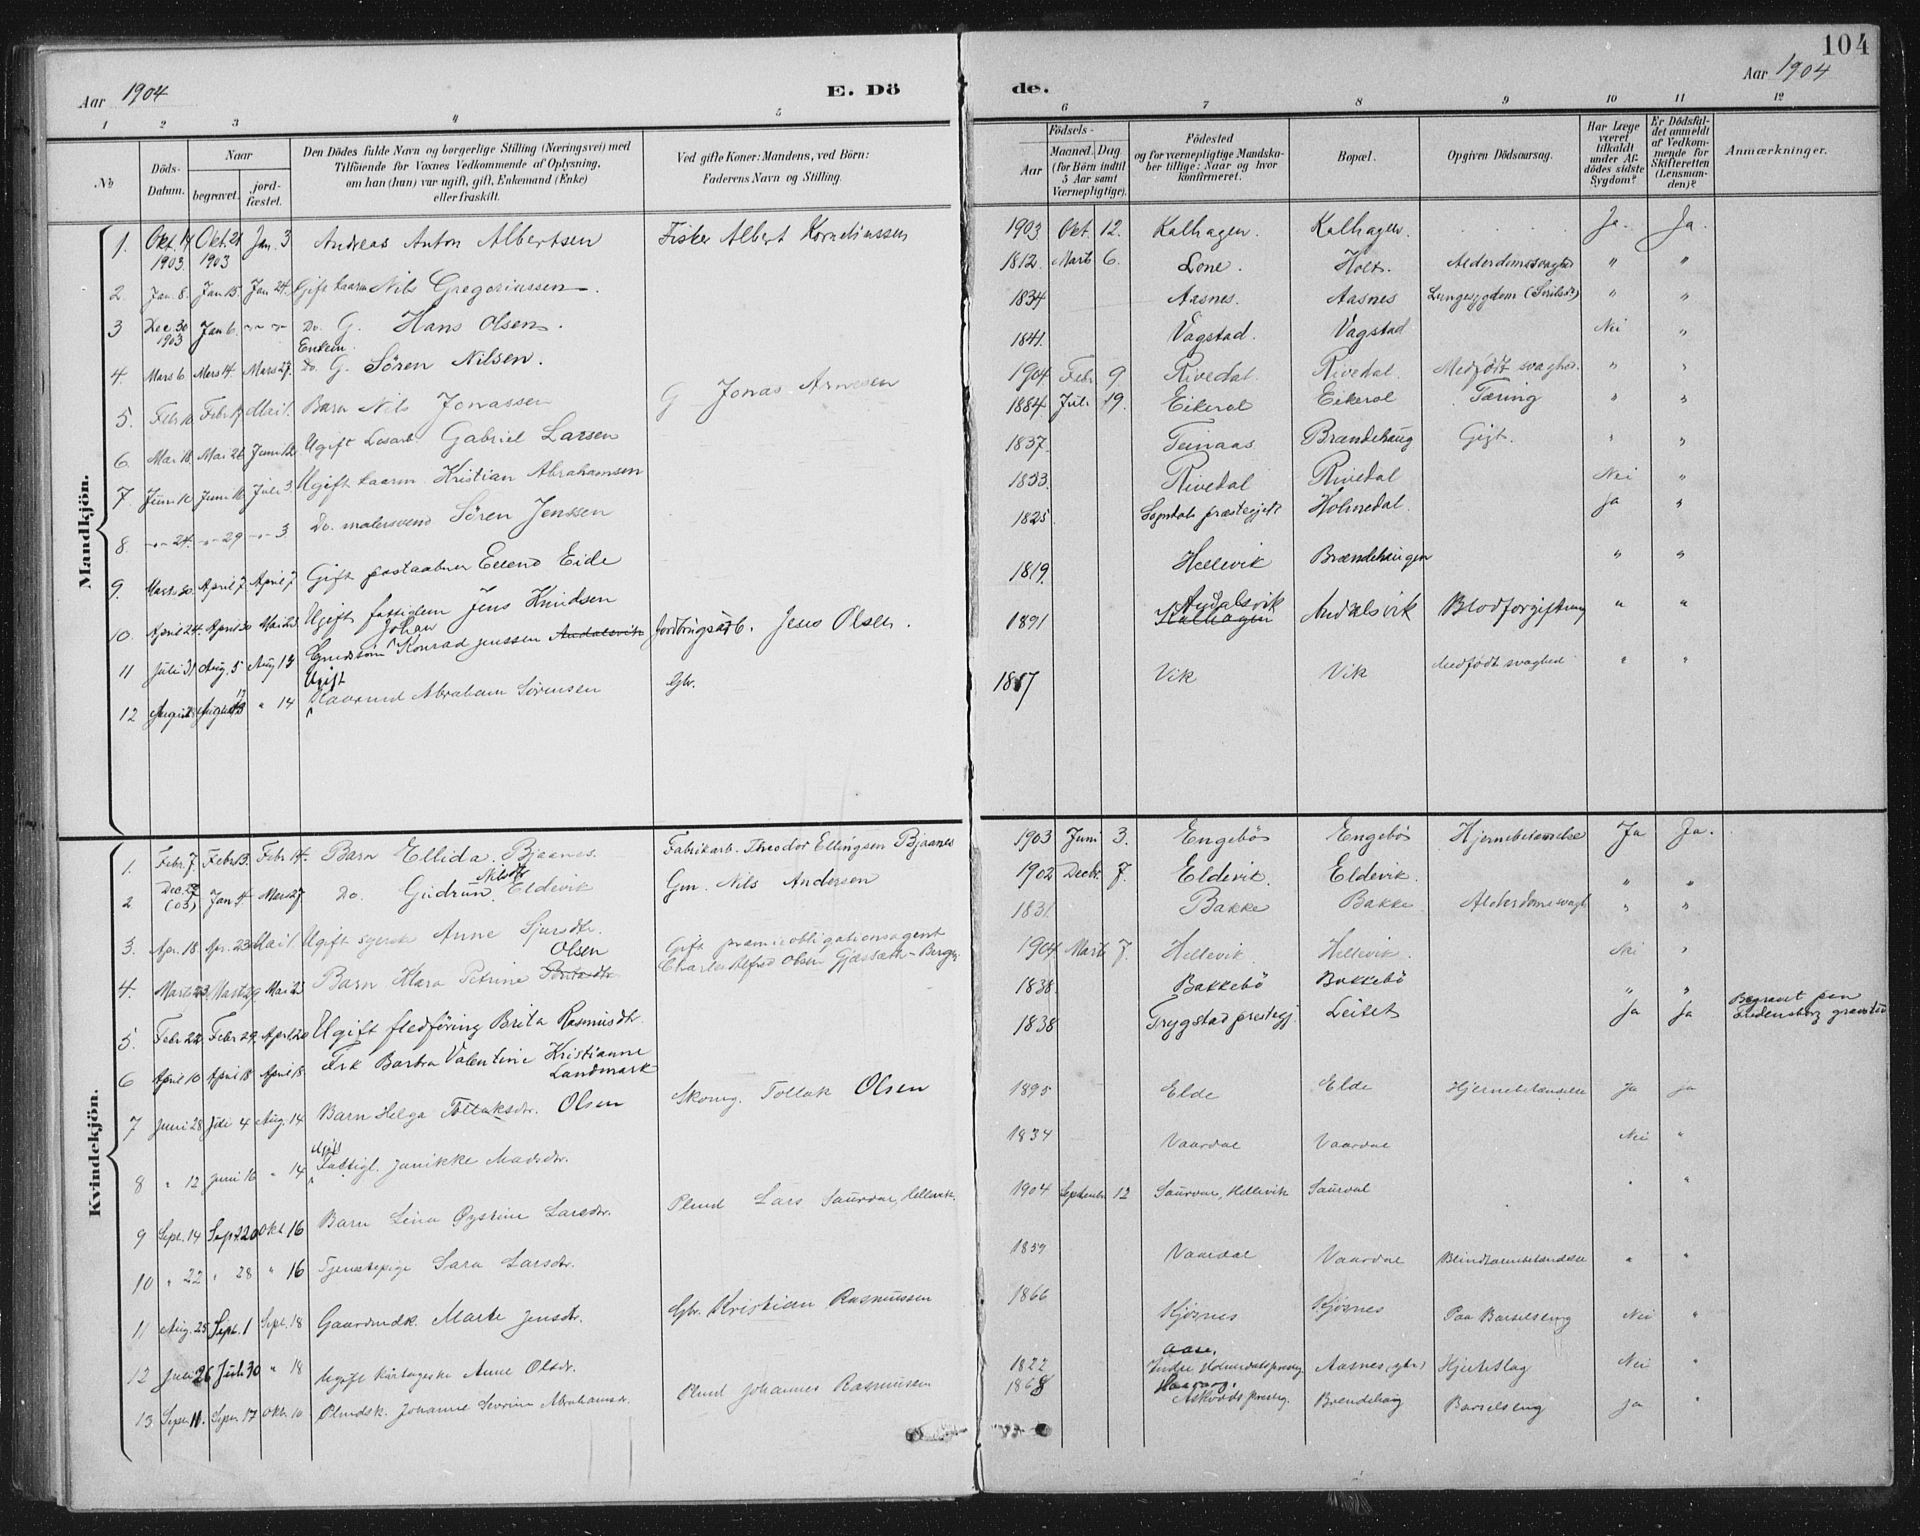 104
Aar 1904
E. Dö
de.
Aar 1904
1 2 3 4 5 6 7 8 9 10 11 12
No
Döds-Datum.
Naar
begravet.
jord-fæstet.
Den Dödes fulde Navn og borgerlige Stilling (Næringsvei) med
Tilföiende for Voxnes Vedkommende af Oplysning,
om han (hun) var ugift, gift, Enkemand (Enke)
eller fraskilt.
Ved gifte Koner: Mandens, ved Börn:
Faderens Navn og Stilling.
Födsels-
Aar
Maaned. Dag
(for Börn indtil
5 Aar samt
Værnepligtige).
Födested
og for værnepligtige Mandska-
ber tillige: Naar og hvor
konfirmeret.
Bopæl.
Opgiven Dödsaarsag.
Har Læge
været
tilkaldt
under Af-
dödes sidste
Sygdom?
Er Dödsfal-
det anmeldt
af Vedkom-
mende for
Skifteretten
(Lensman-
den)?
Anmærkninger.
Mandkjön.
1. Okt. 14 1903 Okt. 21 1903 Jan. 3 Andreas Anton Albertsen Fisker Albert Korneliussen 1903 Okt. 12. Kalhagen. Kalhagen. Ja. Ja.
2. Jan. 8. Jan 15. Jan 24. Gift kaarm Nils Gregoriussen. 1812. Marts 6. Lone. Holt. Alderdomssvaghed " "
3 Dec 30 1903 Jan 6. Do. G. Hans Olsen. 1834 Aasnes. Aasnes Lungesygdom " "
4. Mars 6 Mars 14. Mars 27. Enkem. Do. G. Sören Nilsen. 1841. Vagstad. Vagstad Nei "
5. Febr 10 Febr 17 Mai 1. Barn Nils Jonassen G Jonas Arnesen 1904 Febr 9 Rivedal. Rivedal. Medfödt svaghed. " "
6. Mai 18 Mai 26 Juni 12 Ugift Losarb. Gabriel Larsen 1884. Juli 19. Eikerol Eikerol Tæring " "
7 Juni 10 Juni 18 Juli 3. Ugift kaarm. Kristian Abrahamsen 1837. Brændehaug Gigt. " "
8. 24. 29 3 Do. malersvend Sören Jenssen 1833. Rivedal Rivedal Nei "
9. Marts 30 April 7 April 7 Gift postaabner Erlend Eide 1825 Sogndals præstegjeld Holmedal. Ja "
10. April 24. April 30 Mai 23 Ugift fattiglem Jens Knudsen 1819. Hellevik Brændehaugen " "
11 Juli 31 Aug. 5 Aug 13 Johan Konrad Jenssen Andalsvik Jordbrugsarb. Jens Olsen. 1891 Andalsvik Kalhagen Andalsvik Blodforgiftning " "
12 August 8 August 13 " 14 Ugift Kaarmd Abraham Sørensen Gbr. 1817 Vik Vik Medfödt svaghed " "
Kvindekjön.
1. Febr. 7. Febr 13. Febr 14. Barn Ellida. Bjaanes. Fabrikarb. Theodor Ellingsen Bjaanes 1903 Juni 3. Engebö Engebö Hjernebetændelse Ja Ja.
2 Dec. 29 (03) Jan 4 Mars 27 Do. Gudrun Nilsdtr Eldevik Gm. Nils Andersen 1902 Decbr. 7. Eldevik. Eldevik. " "
3. Apr. 18 Apr. 23 Mai 1 Ugift syerske Anne Sjursdtr. 1831. Bakke Bakke Alderdomssvagh " "
4. Marts 23. Marts 29 Mai 23 Barn Klara Petrine Olsen Gift præmieobligationsagent
Charles Alfred Olsen Gjæssæth-Bergen 1904 Marts 7. Hellevik. Hellevik. Nei "
5. Febr 22 Febr 29. April 20 Ugift fledføring Brita Rasmusdtr. 1838. Bakkebö Bakkebö " "
6 April 10 April 18 April 18. Frk Barbra Valentine Kristianne Landmark 1838 Trygstad prestegj. Leitet Ja Ja Begravet paa gravsted
7 Juni 28 Juli 4 Aug. 14 Barn Helga Tollaksdtr. Olsen Skomg. Tollak Olsen 1895 Elde Elde Hjernebetændelse Ja ja
8 " 12 Juni 16 " 14 Ugift Fattigl. Janikke Madsdtr. 1834 Vaardal Vaardal Nei "
9 Sept. 14 Sept. 20 Okt 16 Barn Lina Øystine Larsdtr. Plmd Lars Saurdal, Hellevik. 1904 September 12 Saurdal, Hellevik Saurdal " "
10 " 22 " 28 " 16 Tjenestepige Sara Larsdtr. 1859 Vaardal Vaardal Blindtarmbetændelse " "
11 Aug. 25 Sept. 1 Sept. 18 Gaardmdk. Marte Jensdtr. Gbr. Kristian Rasmussen 1866 Kjøsnes Kjøsnes Paa Barselseng Nei "
12 Juli 26 Juli 30 " 18 Ugift Anne Olsdr. 1822 Indre Holmedals prestegj. Aasnes Hjerteslag Nei "
13 Septr. 11. Septr. 17 Oktr. 10 Plmdsk. Johanne Severine Abrahamsdr Plmd Johannes Rasmussen 1868 Askvolds prestegj. Brendehaug Barselseng Ja "